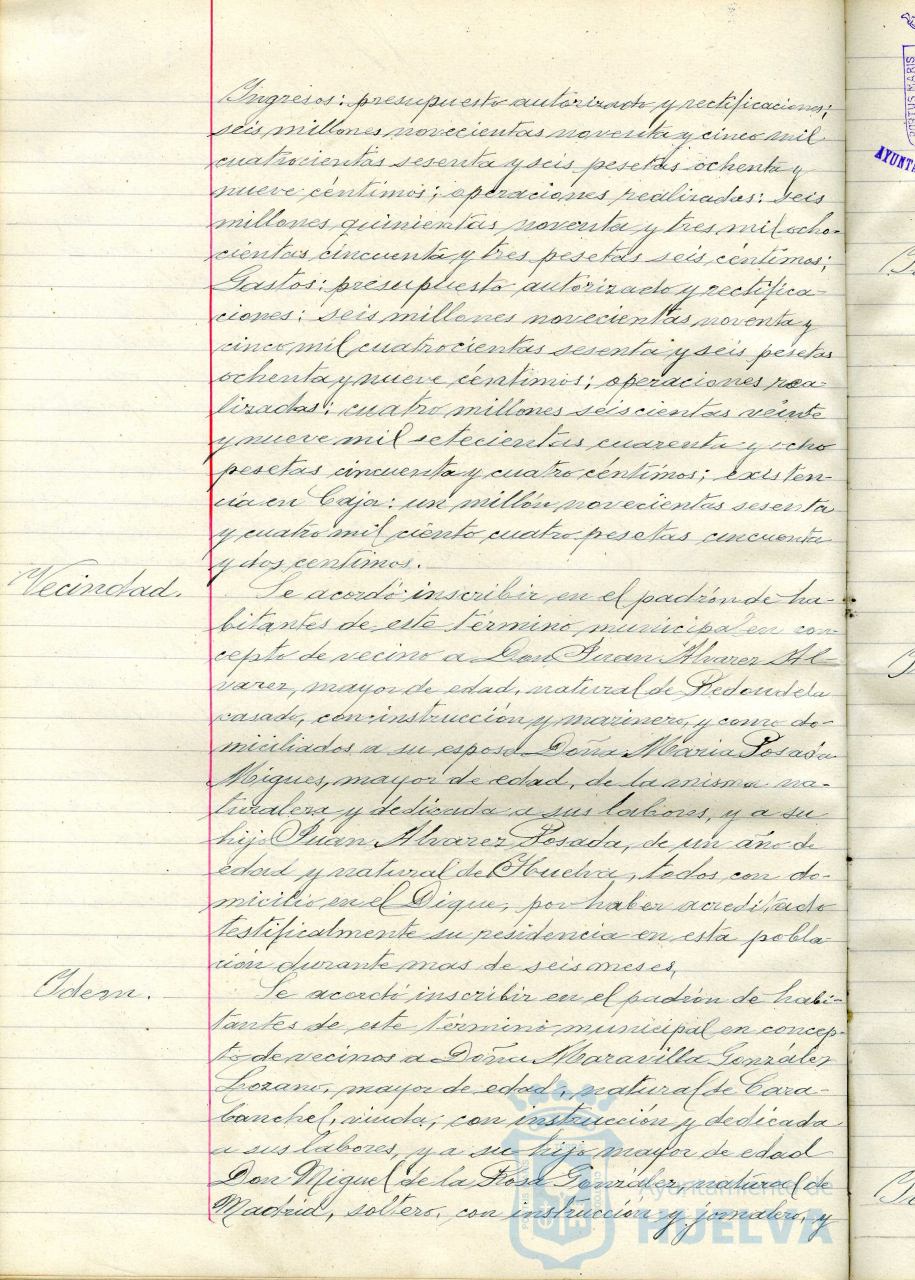 Ingresos: presupuesto autorizado y rectificaciones;
seis millones novecientas noventa y cinco mil
cuatrocientas sesenta y seis pesetas ochenta y
nueve céntimos; operaciones realizadas: seis
millones quinientas noventa y tres mil ocho-
cientas cincuenta y tres pesetas seis céntimos;
Gastos: presupuesto autorizado y rectifica-
ciones: seis millones novecientas noventa y
cinco mil cuatrocientas sesenta y seis pesetas
ochenta y nueve céntimos; operaciones rea-
lizadas: cuatro millones seiscientas veinte
y nueve mil setecientas cuarenta y ocho
pesetas cincuenta y cuatro céntimos; existen-
cia en Caja: un millón novecientas sesenta
y cuatro mil ciento cuatro pesetas cincuenta
y dos centimos.
Vecindad.
Se acordó inscribir en el padrón de ha-
bitantes de este término municipal en con-
cepto de vecino a Don Juan Alvarez Al-
varez, mayor de edad, natural de Redondela
casado, con instrucción y marinero, y como do-
miciliados a su esposa Doña Maria Posada
Migues, mayor de edad, de la misma na-
turaleza y dedicada a sus labores, y a su
hijo Juan Alvarez Posada, de un año de
edad y natural de Huelva, todos con do-
micilio en el Dique, por haber acreditado
testificalmente su residencia en esta pobla-
ción durante mas de seis meses,
Idem.
Se acordó inscribir en el padrón de habi-
tantes de este término municipal en concep-
to de vecinos a Doña Maravilla González
Lozano, mayor de edad, natural de Cara-
banchel, viuda, con instrucción y dedicada
a sus labores, y a su hijo mayor de edad
Don Miguel de la Rosa González, natural de
Madrid, soltero, con instrucción y jornalero, y
Ayuntamiento de
HUELVA
PORTUS MARIS
AYUNTA